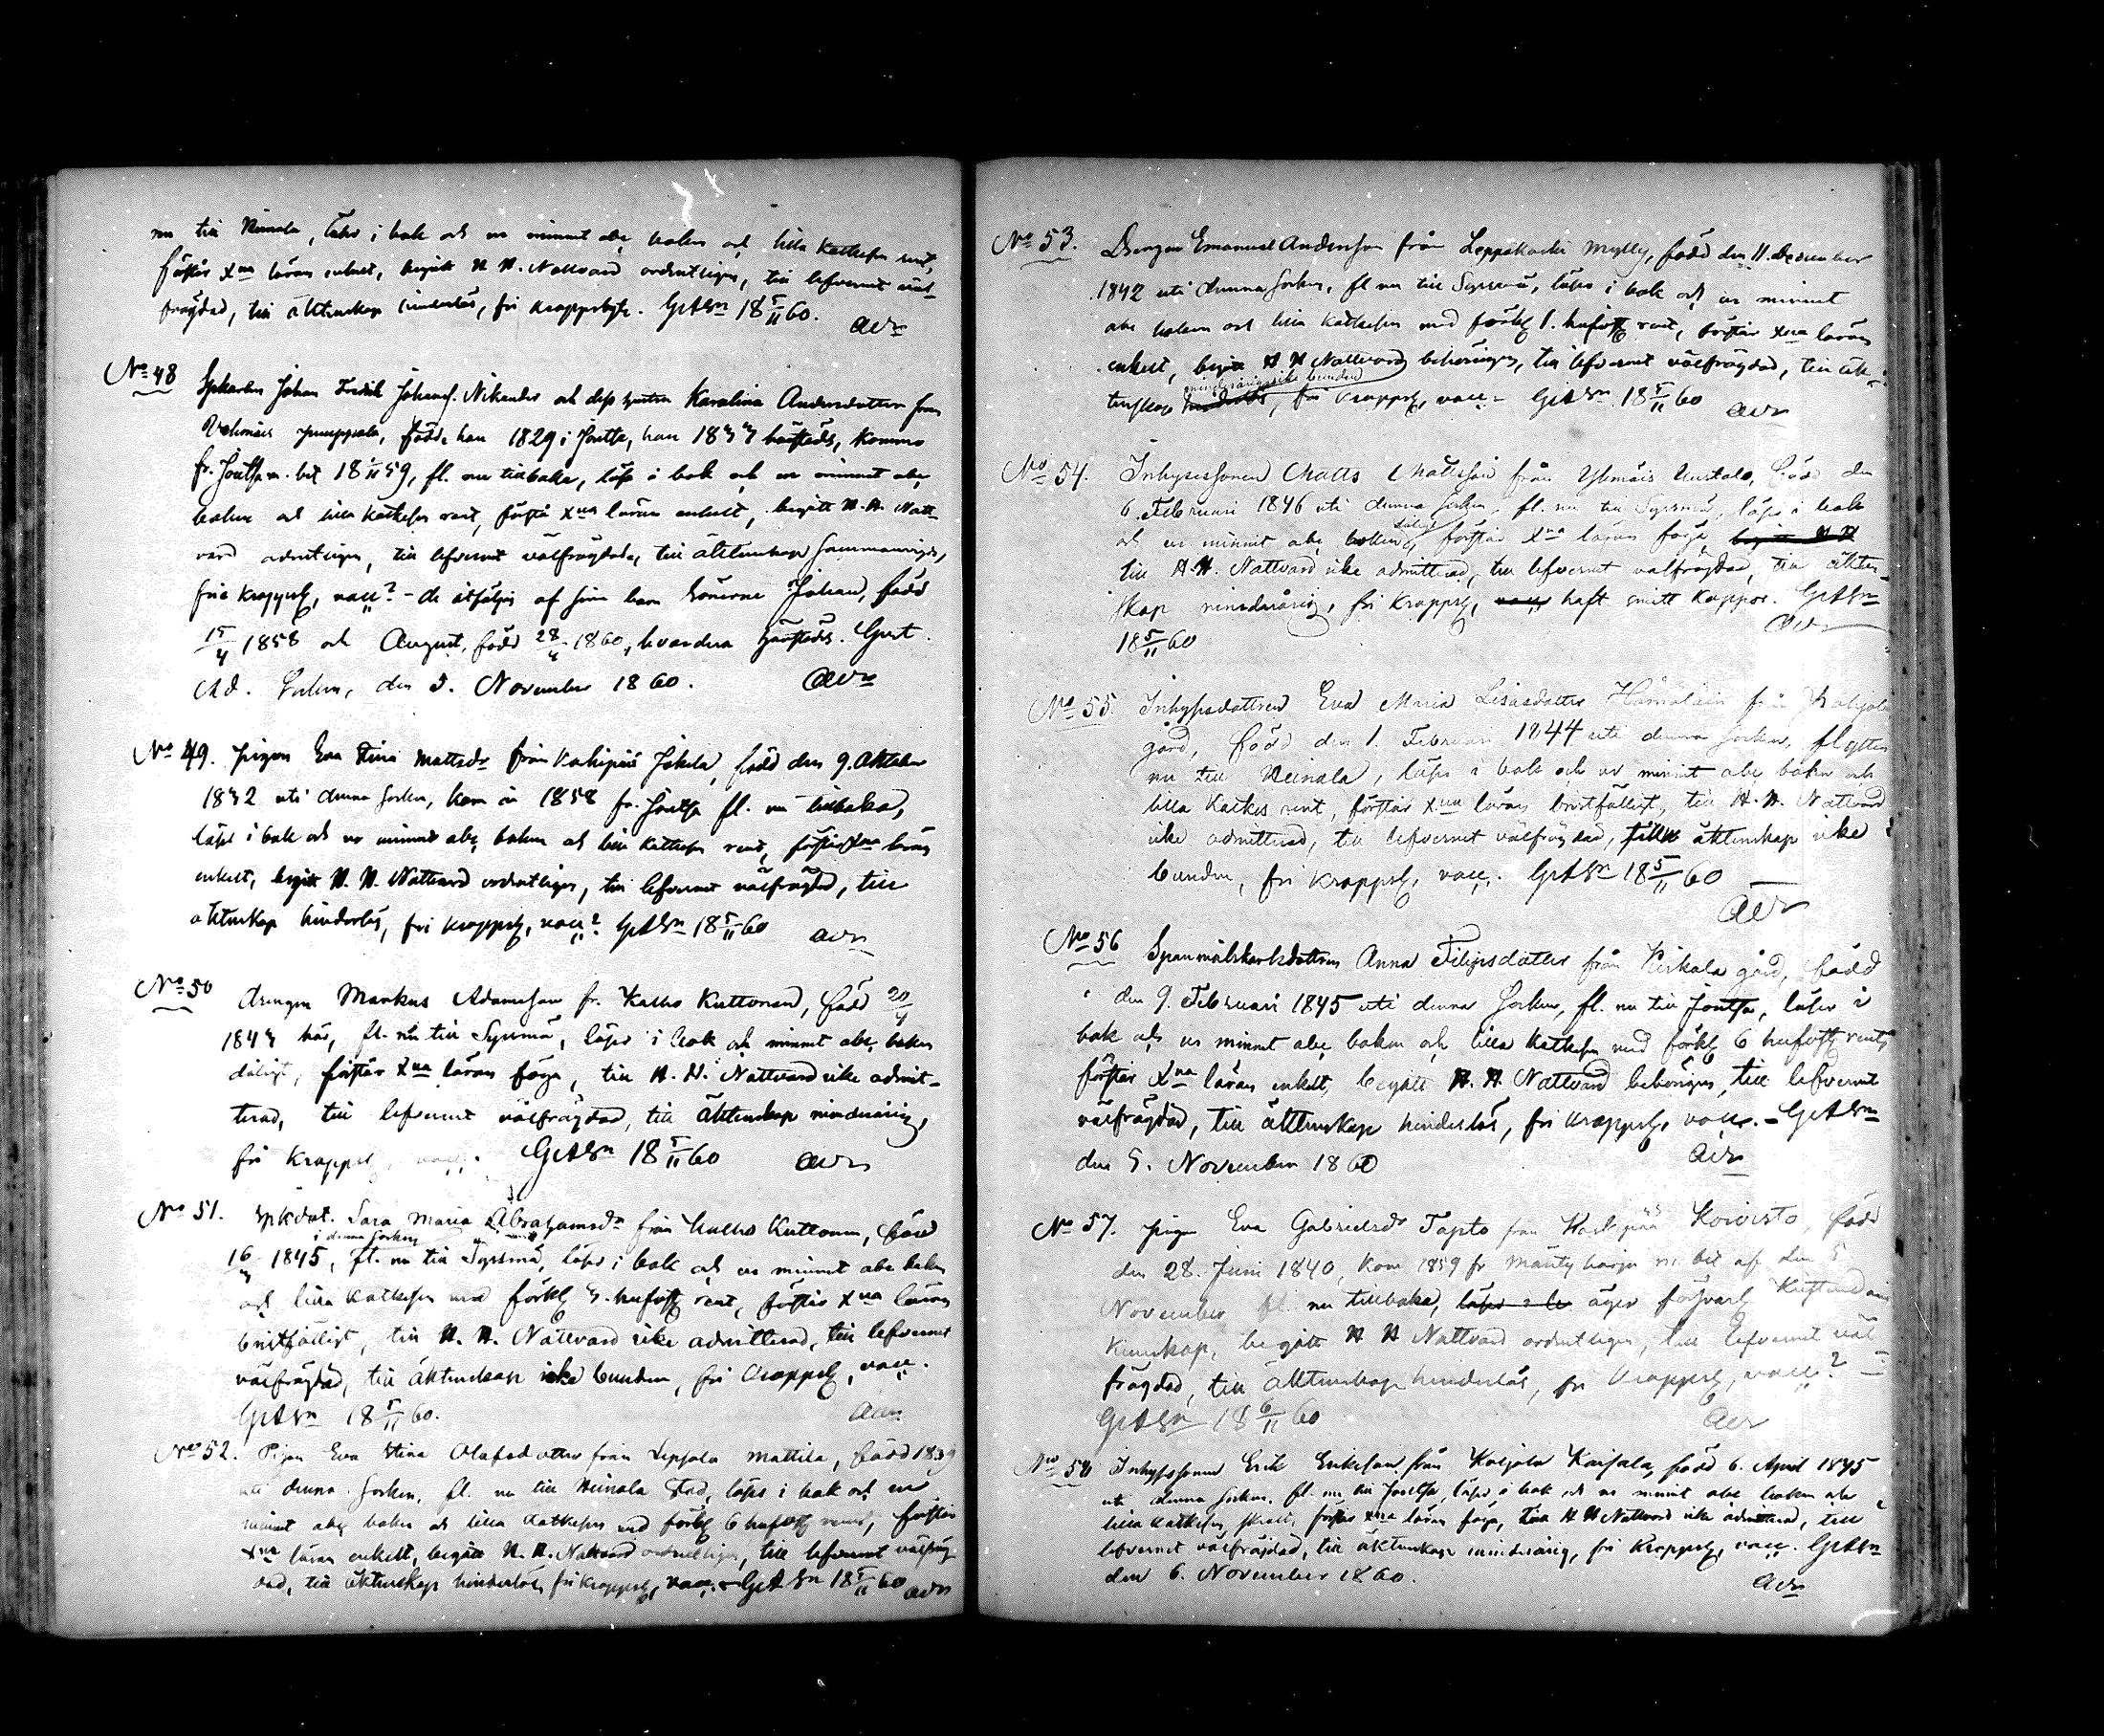 nu till Heinola, läser i bok och ur minnet abc boken och lilla Katkesen rent,
förstår Xna läran enkelt, begått H. H. Nattvard ordentligen, till lefvernet väl-
frägdad, till äktenskap hinderlös, fri kroppslyte. GrtAdSn 18 5/11 60.
No 48 Johan Fredrik Johansf. Nikander och dess hustru Karolina Andersdotter från
födde han 1829 i Joutsa, hon 1833 härstädes, kommo
fr. Joutsa m. bet 18 59, fl. nu tillbaka, läsa i bok och ur minnet abc
boken och lilla Katkesen rent, förstå Xna läran enkelt, begått H. H. Natt-
vard ordentligen, till lefvernet välfrägdade, till äktenskap sammanvigde,
frie kroppsl, vacc? - de åtföljas af sina barn Sönerne Johan, född
15/4 1858 och August, född 28/4 1860, hvardera härstädes. Gust.
Ad. Socken, den 5. November 1860.
No 49. Pigan Eva Stina Mattsdr från Karhipää Jokela, född den 9. Oktober
1832 uti denna socken, kom in 1858 fr. Joutsa fl. nu tillbaka,
läser i bok och ur minnet abc boken och lilla Katkesen rent, förstår Xna läran
enkelt, begått H. H. Nattvard ordentligen, till lefvernet välfrägdad, till
äktenskap hinderlös, fri kroppsl, vacc? GrtAdSn 18 5/11 60
No 50 Drengen Markus Adamsson fr. Kalho Kuttonen, född 20/4
1843 här, fl. nu till Sysmä, läser i bok och minnet abc boken
dåligt, förstår Xna läran föga, till H. H. Nattvard icke admit-
terad, till lefvernet välfrägdad, till äktenskap minderårig,
fri kroppsl, vacc. GrtAdSn 18 5/11 60
No 51. Spkdot. Sara Maria Abrahamsdr från Kalho Kuttonen, född
i denna Socken
16/3 1845, fl. nu till Sysmä, läser i bok och ur minnet abc boken
och lilla Katkesen med förkl 3. hufvst rent, förstår Xna läran
bristfälligt, till H. H. Nattvard icke admitterad, till lefvernet
välfrägdad, till äktenskap icke bunden, fri kroppsl, vacc.
GrtAdSn 18 5/11 60.
No 52. Pigan Eva Stina Olofsdotter från Lepsala Mattila, född 1839
uti denna Socken, fl. nu till Heinola Stad, läser i bok och ur
minnet abc boken och lilla Katkesen med förkl 6 hufvst rent, förstår
Xna läran enkelt, begått H. H. Nattvard ordentligen, till lefvernet välfräg-
dad, till äktenskap hinderlös, fri kroppsl, vacc. GrtAdSn 18 5/11 60
No 53. Drengen Emanuel Andersson från Leppäkoski Mylly, född den 11. December
1842 uti denna socken, fl nu till Sysmä, läser i bok och ur minnet
abc boken och lilla Katkesen med förkl 1. hufvst rent, förstår Xna läran
enkelt, begått H H Nattvard behörigen, till lefvernet välfrägdad, till äk-
minderårig icke bunden
tenskap hinderlös, fri kroppsl, vacc. - GrtAdSn 18 5/11 60
No 54. Inhysessonen Matts Mattsson från Ylimäis Uustalo, född den
6. Februari 1846 uti denna Socken, fl. nu till Sysmä, läser i bok
dåligt
och ur minnet abc boken, förstår Xna läran föga begått H H
till H. H. Nattvard icke admitterad, till lefvernet välfrägdad, till äkten-
skap minderårig, fri kroppsl, vacc haft smitt koppor. GrtAdSn
18 5/11 60
No 55. Inhysesdottren Eva Maria Lisasdotter Hämäläin från
gård, född den 1. Februari 1844 uti denna Socken, flyttar
nu till Heinola, läser i bok och ur minnet abc boken och
lilla Katkes rent, förstår Xna läran bristfälligt, till H. H. Nattvard
icke admitterad, till lefvernet välfrägdad, till äktenskap icke
bunden, fri kroppsl, vacc. GrtAdSn 18 5/11 60
No 56 Spanmålskarlsdottren Anna Filipsdotter från gård, född
den 9. Februari 1845 uti denna Socken, fl. nu till Joutsa, läser i
bok och ur minnet abc boken och lilla Katkesen med förkl 6 hufvst rent,
förstår Xna läran enkelt, begått H. H. Nattvard behörigen, till lefvernet
välfrägdad, till äktenskap hinderlös, fri kroppsl, vacc. - GrtAdSn
den 5. November 1860
No 57. Pigan Eva Gabrielsdr Tapto från Karkipää Koivisto, född
den 28. Juni 1840, kom 1859 fr Mäntyharju m. bet af den 5
November fl. nu tillbaka, läser i bo äger försvarl Kristendoms
kunskap, begått H H Nattvard ordentligen, till lefvernet väl-
frägdad, till äktenskap hinderlös, fri kroppsl, vacc?
GrtAdSn 18 6/11 60
No 58 Inhysessonen Erik Eriksson från Koljola född 6. April 1845
uti denna socken, fl. nu till Joutsa, läser i bok och ur minnet abc boken och
lilla Katkesen förstår Xna läran föga, till H H Nattvard icke admitterad, till
lefvernet välfrägdad, till äktenskap minderårig, fri kroppsl, vacc. GrtAdSn
den 6. November 1860.